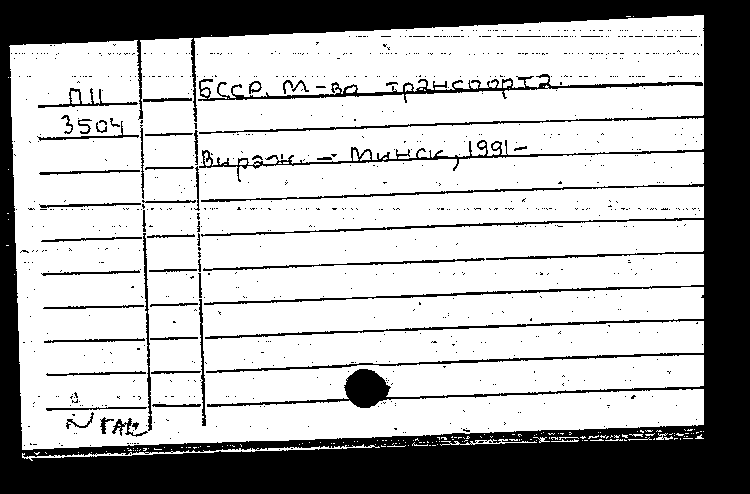 П11
3504
БССР. М-во транспорта.
Вираж. – Минск, 1991 –